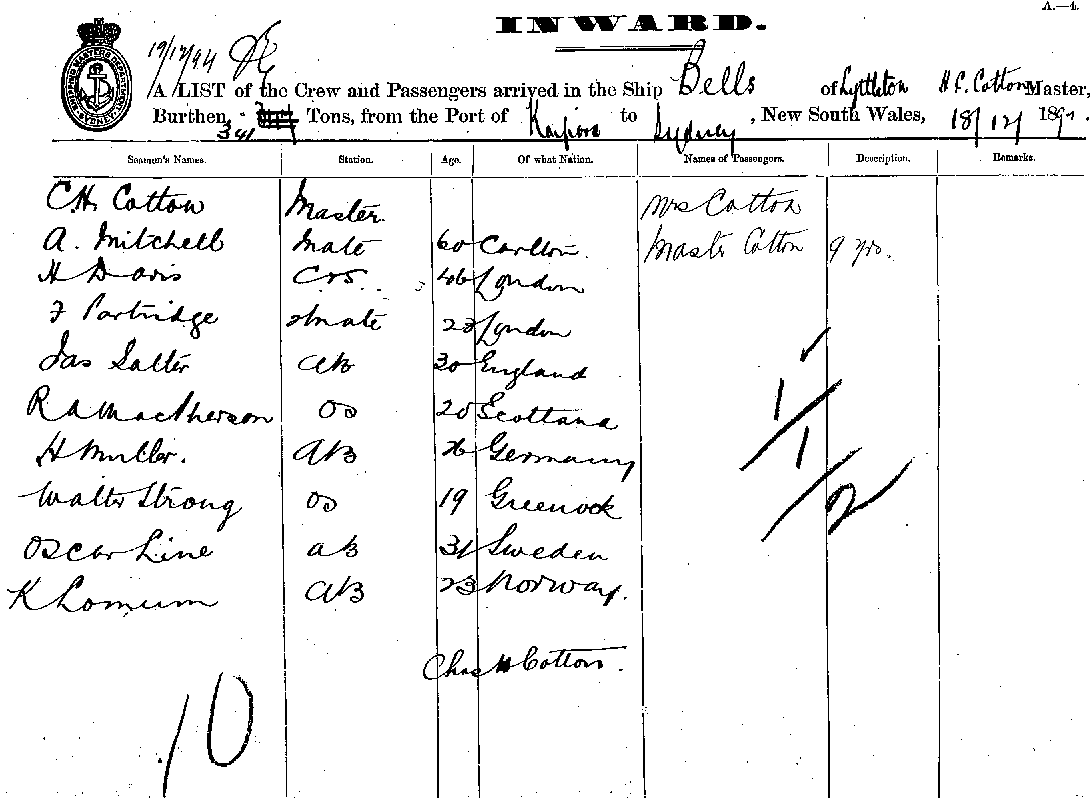 A.—4.
INWARD.
19/12/94
A LIST of the Crew and Passengers arrived in the Ship Bells of Lyttleton H. C. Cotton Master,
Burthen 341 Tons, from the Port of Kaipara to Sydney, New South Wales, 18/12/ 189
Seamen's Names. Station. Age. Of what Nation. Names of Passengers. Description. Remarks.
C.H. Cotton Master Mrs Cotton
A. Mitchell Mate 60 Carlton. Master Cotton 9 yrs.
H Davis C&S. 46 London
F Partridge 2 Mate 23 London
Jas Salter AB 30 England
R A MacPherson OS 20 Scotland
H Muller. AB 26 Germany
Walter Strong OS 19 Greenock
Oscar Line AB 31 Sweden
K Lomum AB 23 Norway.
Chas H Cotton.
1
1
2
10